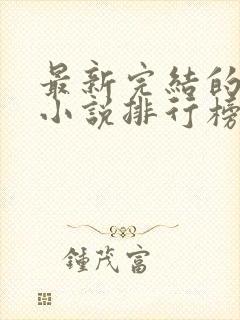 最新完結的
小説排行榜
鍾茂富